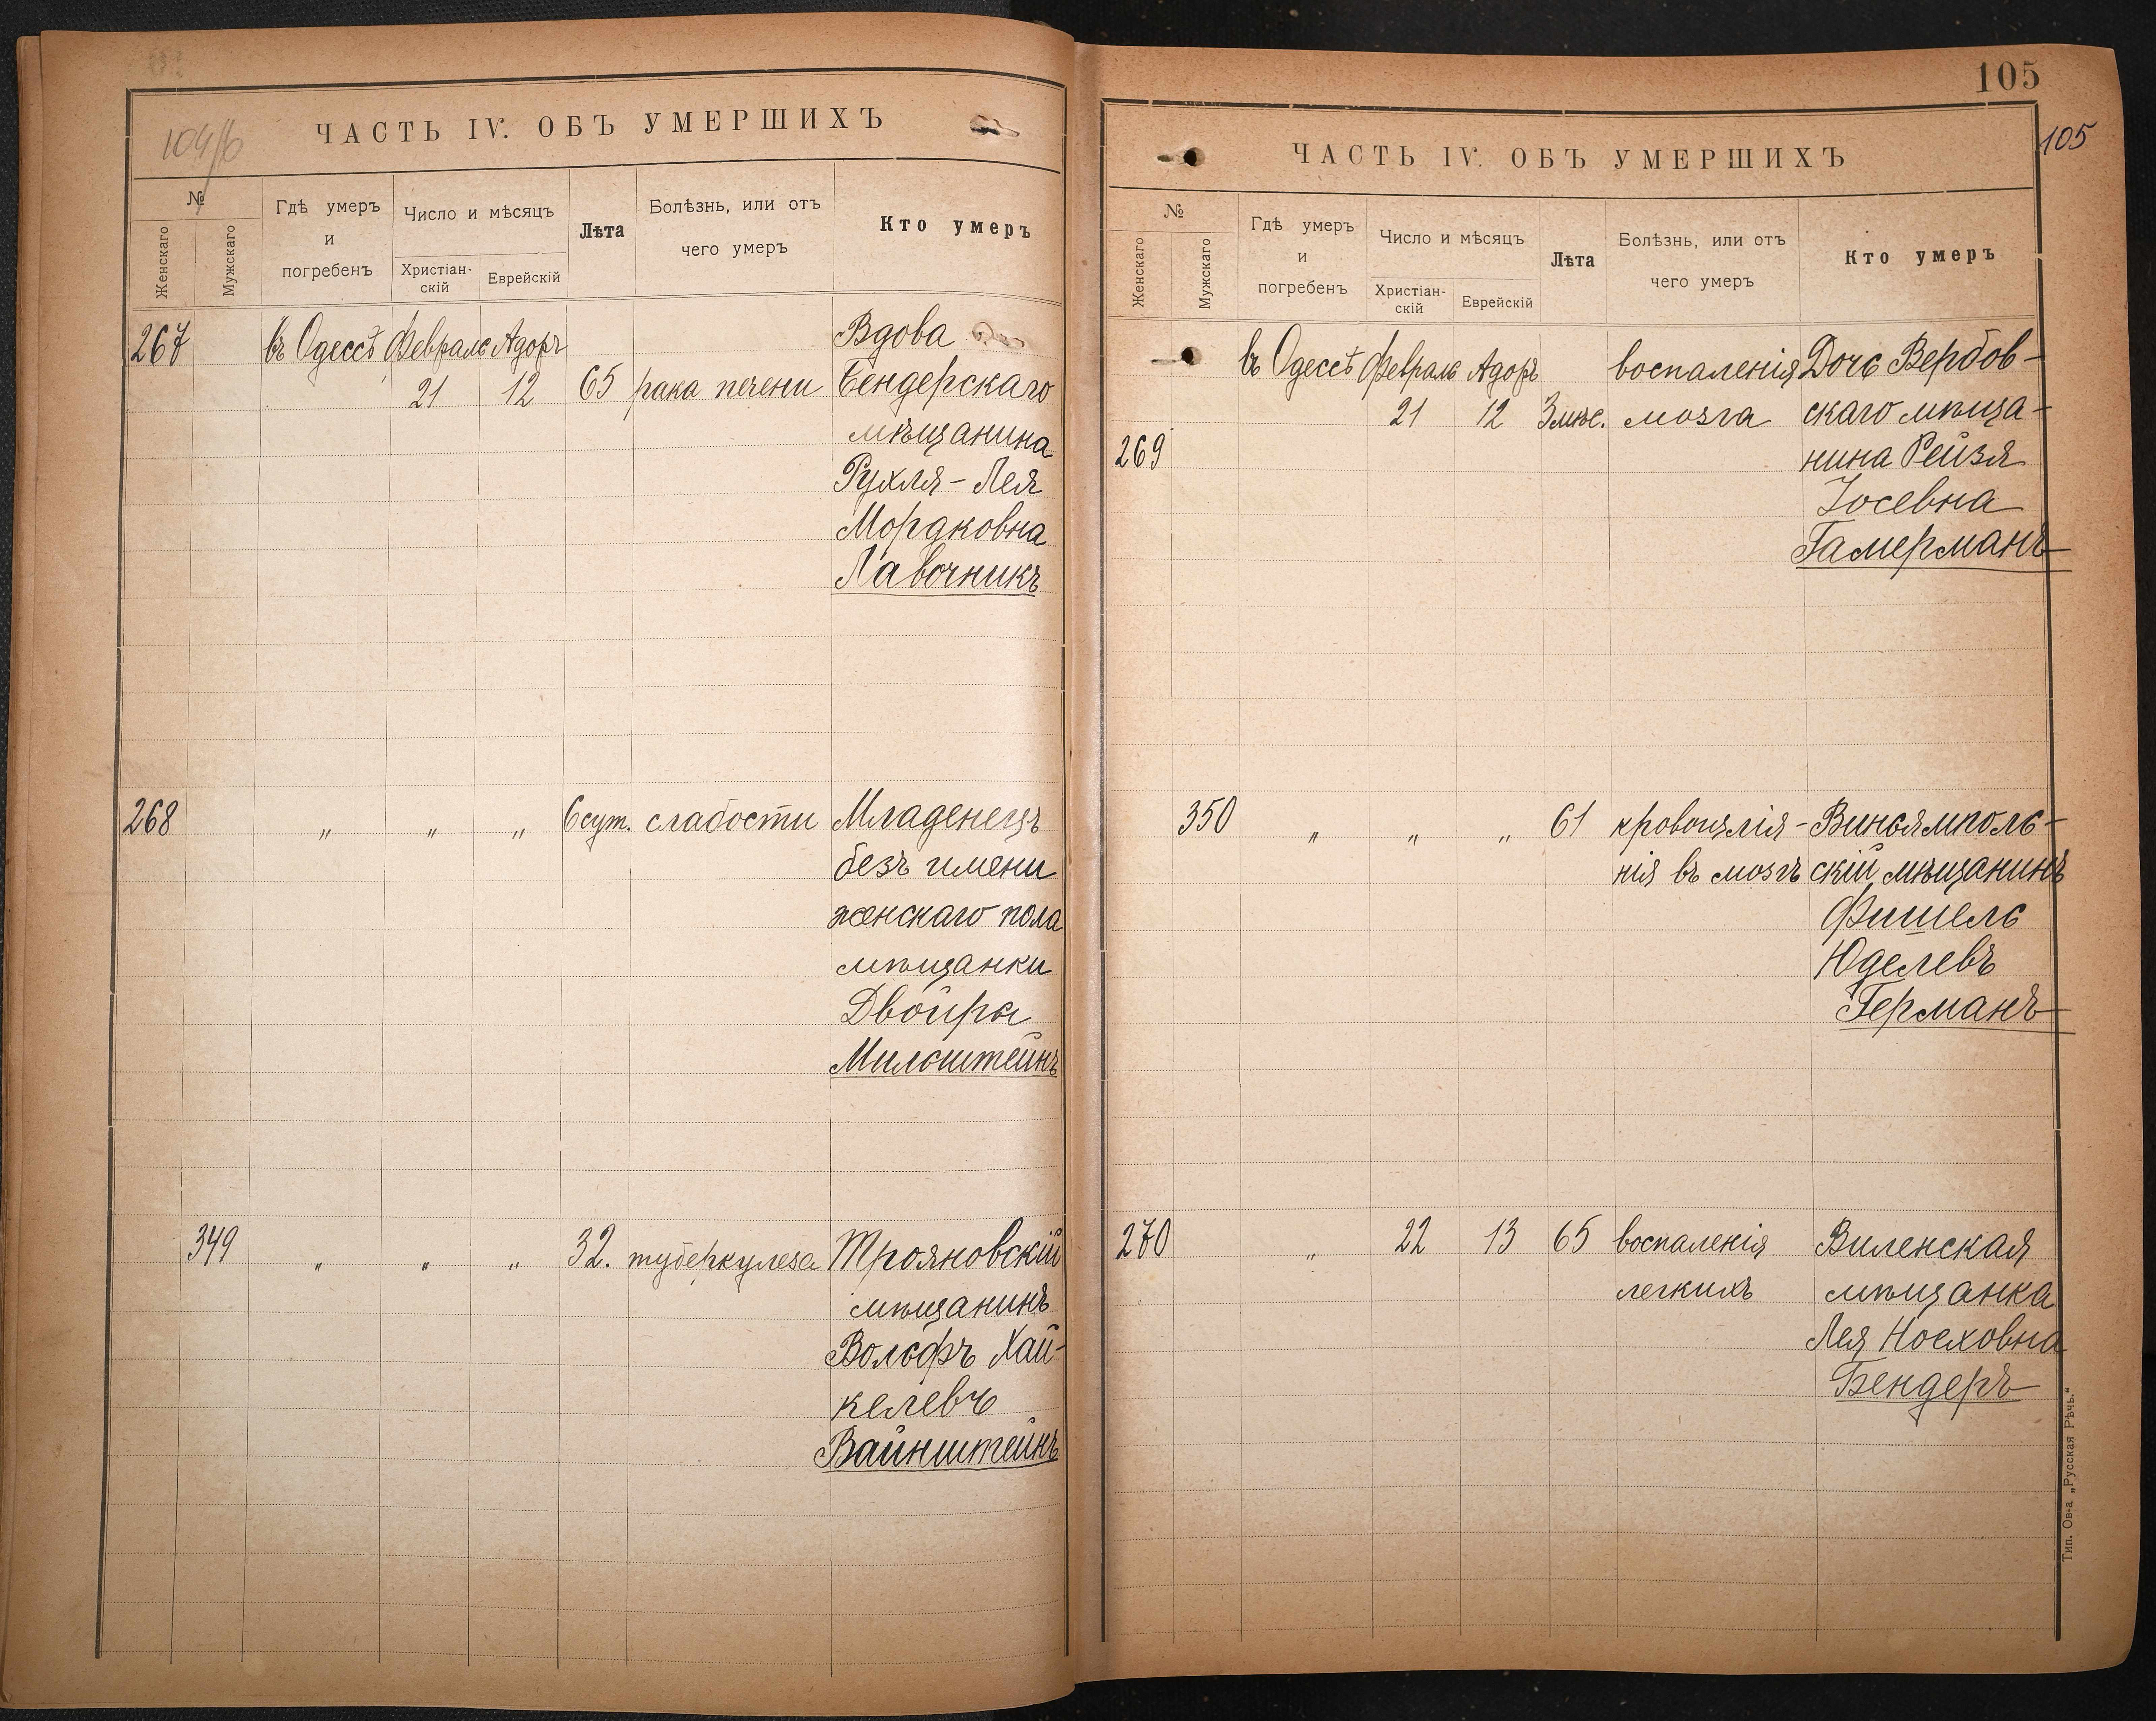 104/б
ЧАСТЬ IV. ОБЪ УМЕРШИХЪ
№
Женскаго
Мужскаго
Гдѣ умеръ
и
погребенъ
Число и мѣсяцъ
Христіан-
скій
Еврейскій
Лѣта
Болѣзнь, или отъ
чего умеръ
Кто умеръ
267 въ Одессѣ Февраль Адоръ Вдова
21 12 65 рака печени Бендерскаго
мѣщанина
Рухля-Лея
Мордковна
Лавочникъ
268 " " " 6 сут. слабости Младенецъ
безъ имени
женскаго пола
мѣщанки
Двойры
Мильштейнъ
349 " " " 32. туберкулеза Трояновскій
мѣщанинъ
Вольфъ Хай-
келевъ
Вайнштейнъ
105
105
ЧАСТЬ IV. ОБЪ УМЕРШИХЪ
№
Женскаго
Мужскаго
Гдѣ умеръ
и
погребенъ
Число и мѣсяцъ
Христіан-
скій
Еврейскій
Лѣта
Болѣзнь, или отъ
чего умеръ
Кто умеръ
въ Одессѣ Февраль Адоръ воспаленія Дочь Вербов-
21 12 3 мѣс. мозга скаго мѣща-
269 нина Рейзя
Іосевна
Гамерманъ
350 " " " 61 кровоизлія- Виньямполь-
нія въ мозгъ скій мѣщанинъ
Фишель
Юделевъ
Германъ
270 " 22 13 65 воспаленія Виленская
легкихъ мѣщанка
Лея Ноеховна
Бендеръ
Тип. Ов-а „Русская Рѣчь."